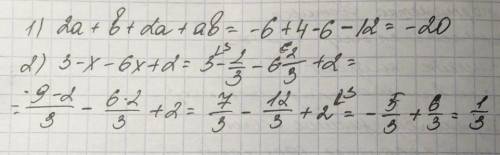 1) 2a + b + 2a + ab = -6 + 4 - 6 - 12 = -20
2) 3 - x - 6x + 2 = 3^{\3} - \frac{2}{3} - 6\frac{2}{3} + 2 =
= \frac{9-2}{3} - \frac{6·2}{3} + 2 = \frac{7}{3} - \frac{12}{3} + 2^{\3} = -\frac{5}{3} + \frac{6}{3} = \frac{1}{3}